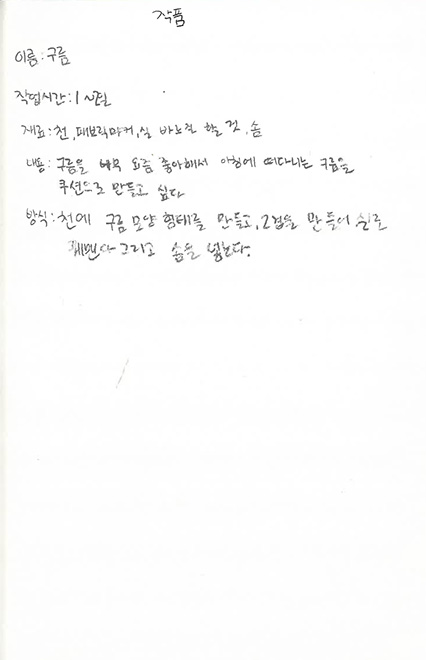 작품
이름 : 구름
작업시간 : 1~2일
재료 : 천, 패브릭마커, 실 바느질 할 것, 솜
내용 : 구름을 너무 요즘 좋아해서 떠다니는 구름을
쿠션으로 만들고 싶다
방식 : 천에 구름 모양 형태를 만들고, 2겹을 만들어 실로
그리고 솜을 넣는다.